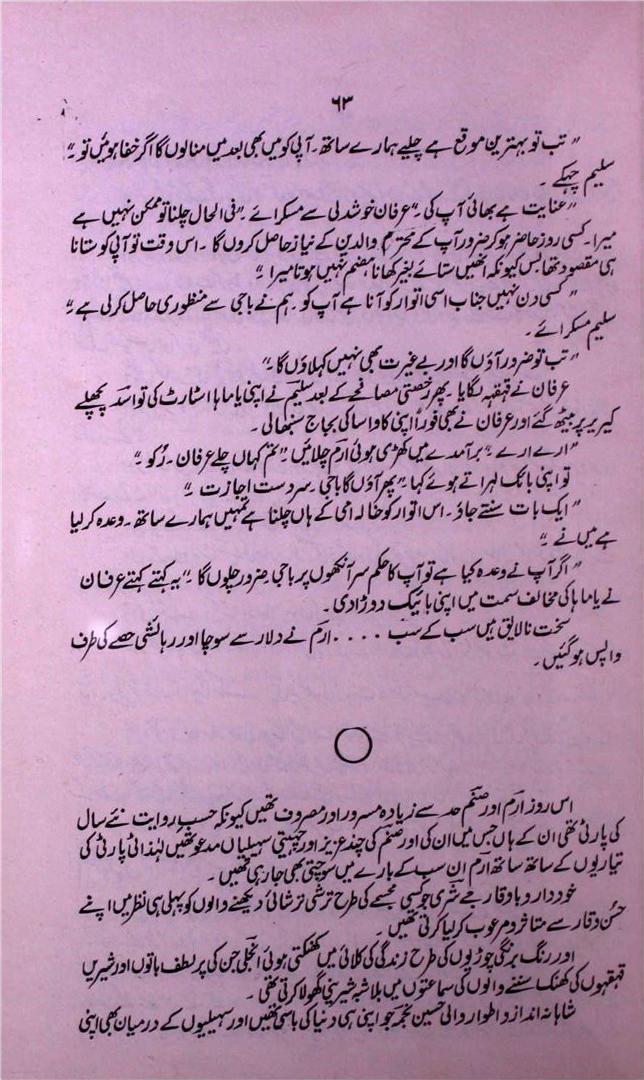 ۶۳
" تب تو بہترین موقع ہے چلیے ہمارے ساتھ ۔ آپی کو میں بھی بعد میں منا لوں گا اگر خفا ہوئیں تو ۔"
سلیم چہکے ۔
" عنایت ہے بھائی آپ کی ۔" عرفان خوشدلی سے مسکرائے ۔" فی الحال چلنا تو ممکن نہیں ہے
میرا ۔ کسی روز حاضر ہو کر ضرور آپ کے محترم والدین کے نیاز حاصل کروں گا ۔ اس وقت تو آپی کو ستانا
ہی مقصود تھا بس کیونکہ انھیں ستائے بغیر کھانا ہضم نہیں ہوتا میرا ۔"
" کسی دن نہیں جناب اسی اتوار کو آنا ہے آپ کو ۔ ہم نے باجی سے منظوری حاصل کر لی ہے ۔"
سلیم مسکرائے ۔
" تب تو ضرور آؤں گا اور بے غیرت بھی نہیں کہلاؤں گا ۔"
عرفان نے قہقہہ لگایا ۔ پھر رخصتی مصافحے کے بعد سلیم نے اپنی یاماہا اسٹارٹ کی تو اسد پچھلے
کیریر پر بیٹھ گئے اور عرفان نے بھی فوراً اپنی کاواساکی بجاج سنبھالی ۔
" ارے ارے ۔" برآمدے میں کھڑی ہوئی ارم چلائیں ۔" تم کہاں چلے عرفان ۔ رُکو ۔"
تو اپنی بائک لہراتے ہوئے کہا " پھر آؤں گا باجی ۔ سردست اجازت ۔"
" ایک بات سنتے جاؤ ۔ اس اتوار کو خالہ امی کے ہاں چلنا ہے تمہیں ہمارے ساتھ ۔ وعدہ کر لیا
ہے میں نے ۔"
" اگر آپ نے وعدہ کیا ہے تو آپ کا حکم سر آنکھوں پر باجی ۔ ضرور چلوں گا ۔" یہ کہتے کہتے عرفان
نے یاماہا کی مخالف سمت میں اپنی بائیک دوڑا دی ۔
سخت نالایق ہیں سب کے سب .... ارم نے دلار سے سوچا اور رہائشی حصے کی طرف
واپس ہو گئیں ۔
اس روز ارم اور صنم حد سے زیادہ مسرور اور مصروف تھیں کیونکہ حسبِ روایت نئے سال
کی پارٹی تھی ان کے ہاں جس میں ان کی اور صنم کی چند عزیز اور چہیتی سہیلیاں مدعو تھیں لہٰذا پارٹی کی
تیاریوں کے ساتھ ساتھ ارم ان سب کے بارے میں سوچتی بھی جا رہی تھیں ۔
خوددار و باوقار جے شری جو کسی مجسمے کی طرح ترشی ترشائی دیکھنے والوں کو پہلی ہی نظر میں اپنے
حُسن و وقار سے متاثر و مرعوب کر لیا کرتی تھیں ۔
اور رنگ برنگی چوڑیوں کی طرح زندگی کی کلائی میں کھنکتی ہوئی انجلی جن کی پر لطف باتوں اور شیریں
قہقہوں کی کھنک سننے والوں کی سماعتوں میں بلاشبہ شیرینی گھولا کرتی تھی ۔
شاہانہ انداز و اطوار والی حسین نجمہ جو اپنی ہی دنیا کی باسی تھیں اور سہیلیوں کے درمیان بھی اپنی